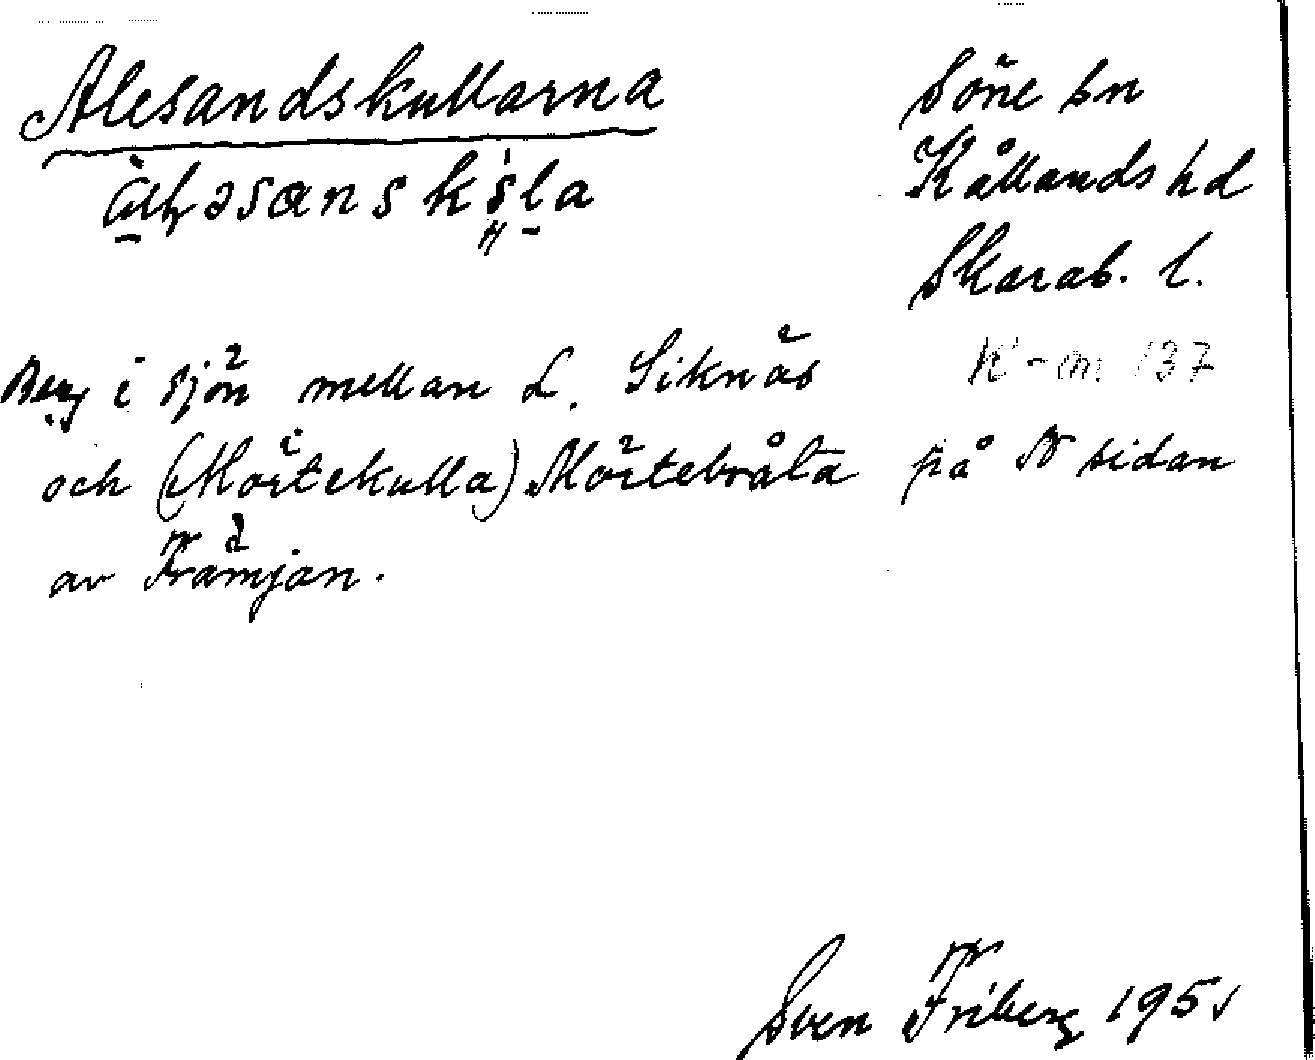 Alesandskullarna
Söne sn
Kållands hd
Skarab. l.
K-m 137
Berg i sjön mellan L. Siknäs
och (Mörtekulla) Mörtebråta på N sidan
av Främjan.
Sven Friberg 1951